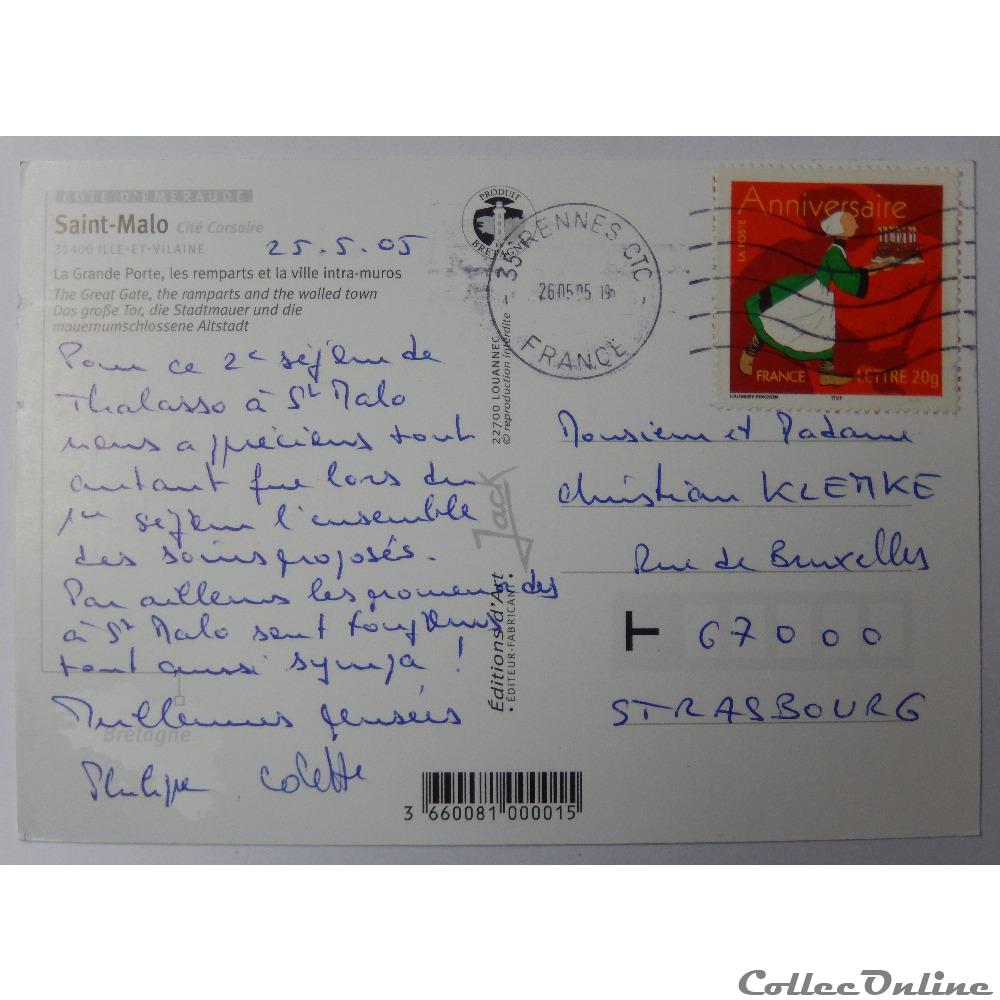 CÔTE D'ÉMERAUDE
Saint-Malo Cité Corsaire
35400 ILLE-ET-VILAINE
25.5.05
La Grande Porte, les remparts et la ville intra-muros
The Great Gate, the ramparts and the walled town
Das große Tor, die Stadtmauer und die
mauernumschlossene Altstadt
Pour ce 2e séjour de
Thalasso à St Malo
nous apprécions tout
autant que lors du
1er séjour l'ensemble
des soins proposés.
Par ailleurs les promenades
à St Malo sont toujours
tout aussi sympa !
Meilleures pensées
Philippe Colette
Bretagne
PRODUIT
BRETAGNE
22700 LOUANNEC
© reproduction interdite
Jack
Éditions d'Art
ÉDITEUR-FABRICANT
3 660081 000015
35 RENNES CTC
26.05.05 19h
FRANCE
Anniversaire
LA POSTE
FRANCE LETTRE 20g
ITVF
Monsieur et Madame
Christian KLEMKE
Rue de Bruxelles
T 67000
STRASBOURG
CollecOnline